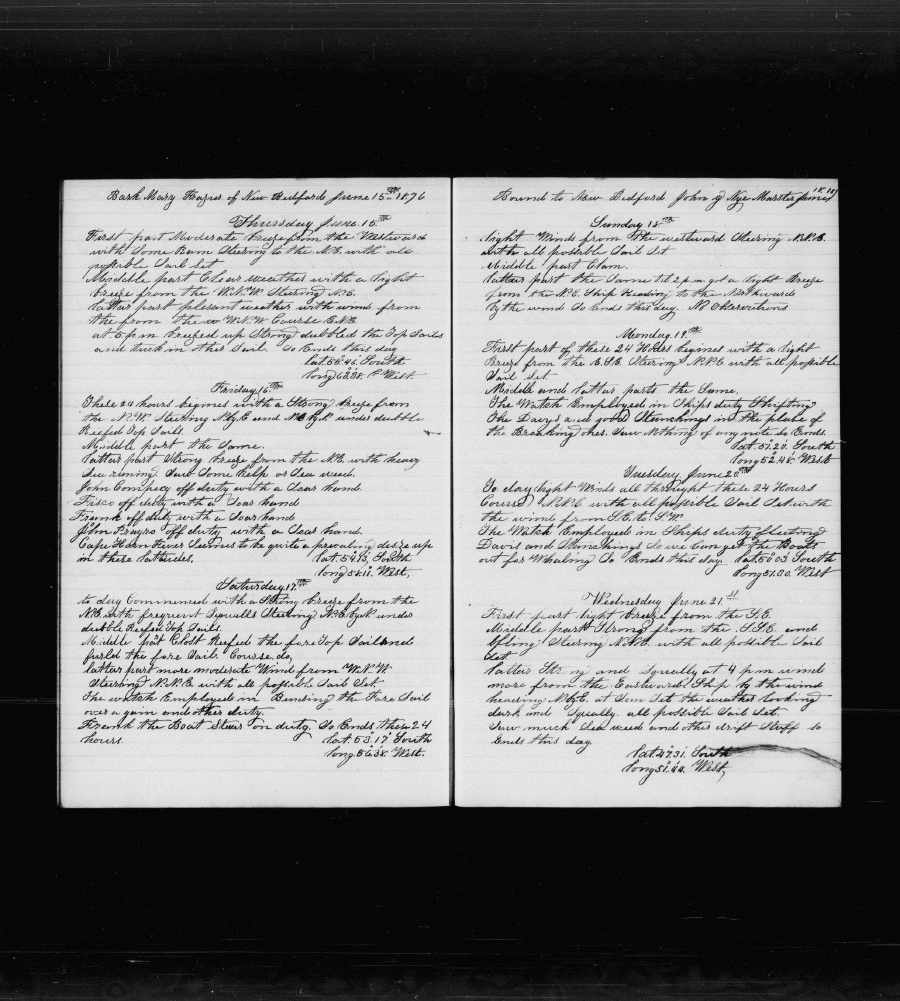 Bark Mary Frazier of New Bedford June 15th 1876
Thursday June 15th
First part Moderate breeze from the Westward
with Some Rain Steering to the N.E. with all
possible Sail Set
Middle part Clear weather with a light
breeze from the W.N.W. Steering N.E.
latter part plesent weather with wind from
the from the W.N.W Course E.N.E.
at 5 p.m breezed up Strong dubbled the Top Sails
and tuck in other Sail. So Ends this day
lat. 55.46. South
long 63.38. West.
Friday 16th
These 24 hours begines with a Strong breeze from
the N.W. Steering N by E and N.E by N under dubble
Reefed Top Sails
Middle part the Same.
latter part Strong breeze from the N.E. with heavy
Sea runing Saw Some Kelp or Sea weed.
John off duty with a Soar hand
Frisco off duty with a Soar hand
Frank off duty with a Soar hand
John off duty with a Soar hand.
Cape Horn Fever Seemes to be quite a prevaling
in these latitudes. lat. 54.13. South
long 58.11. West,
Saturday 17.th
to day Commenced with a Strong breeze from the
N.E. with frequent Squalls Steering N.E. by N under
dubble Reefed Top Sails.
Middle part Clost Reefed the fore Top Sail and
furld the fore Sail. Course do,
latter part more moderate Wind from W.N.W
Steering N.N.E. with all possible Sail Set.
The watch Employed in Bending the Fore Sail
over a gain and other duty.
Frank the Boat Steer on duty. So Ends these 24
hours. lat. 53.17 South
long. 56.38. West.
Bound to New Bedford John Nye Marster June 18.1876
Sunday 18th
light Winds from the westward Steering N.N.E.
with all possible Sail Set
Middle part Clam.
latter part the Same till 2 p.m got a light Breeze
from the N.E. Ship heading to the Northward
by the wind So Ends this day. No Observations
Monday 19.th
First part of these 24 Hours begines with a light
Breeze from the E.S.E. Steering N.N.E. with all possible
Sail Set
Middle and latter parts the Same,
The Watch Employed in Ships duty Shifting
The Davys and good Stanchings in the place of
the Breaking ones. Saw Nothing of any note So Ends.
lat. 51.20. South
long 52.48. West
Tuesday June 20th
To day light Winds all throught these 24 Hours
Course N.N.E. with all possible Sail Set with
the wind from S.E. to S.W
The Watch Employed in Ships duty
Davis and Stanchings So we Can get the Boats
out for Whaling So Ends this day. lat. 50.03 South
long 51.30. West
Wednesday June 21.st
First part light breeze from the S.E.
Middle part Strong from the S.S.E. and
Steering N.N.E. with all possible Sail
Set.
latter Strong and Squally at 4 p.m wind
more from the Eastward Ship by the wind
heading N by E. at Sun Set the weather looking
dark and Squally. all possible Sail Set
Saw much Sea weed and other drift Stuff so
Ends this day.
lat. 47.31. South
long 51.44. West,